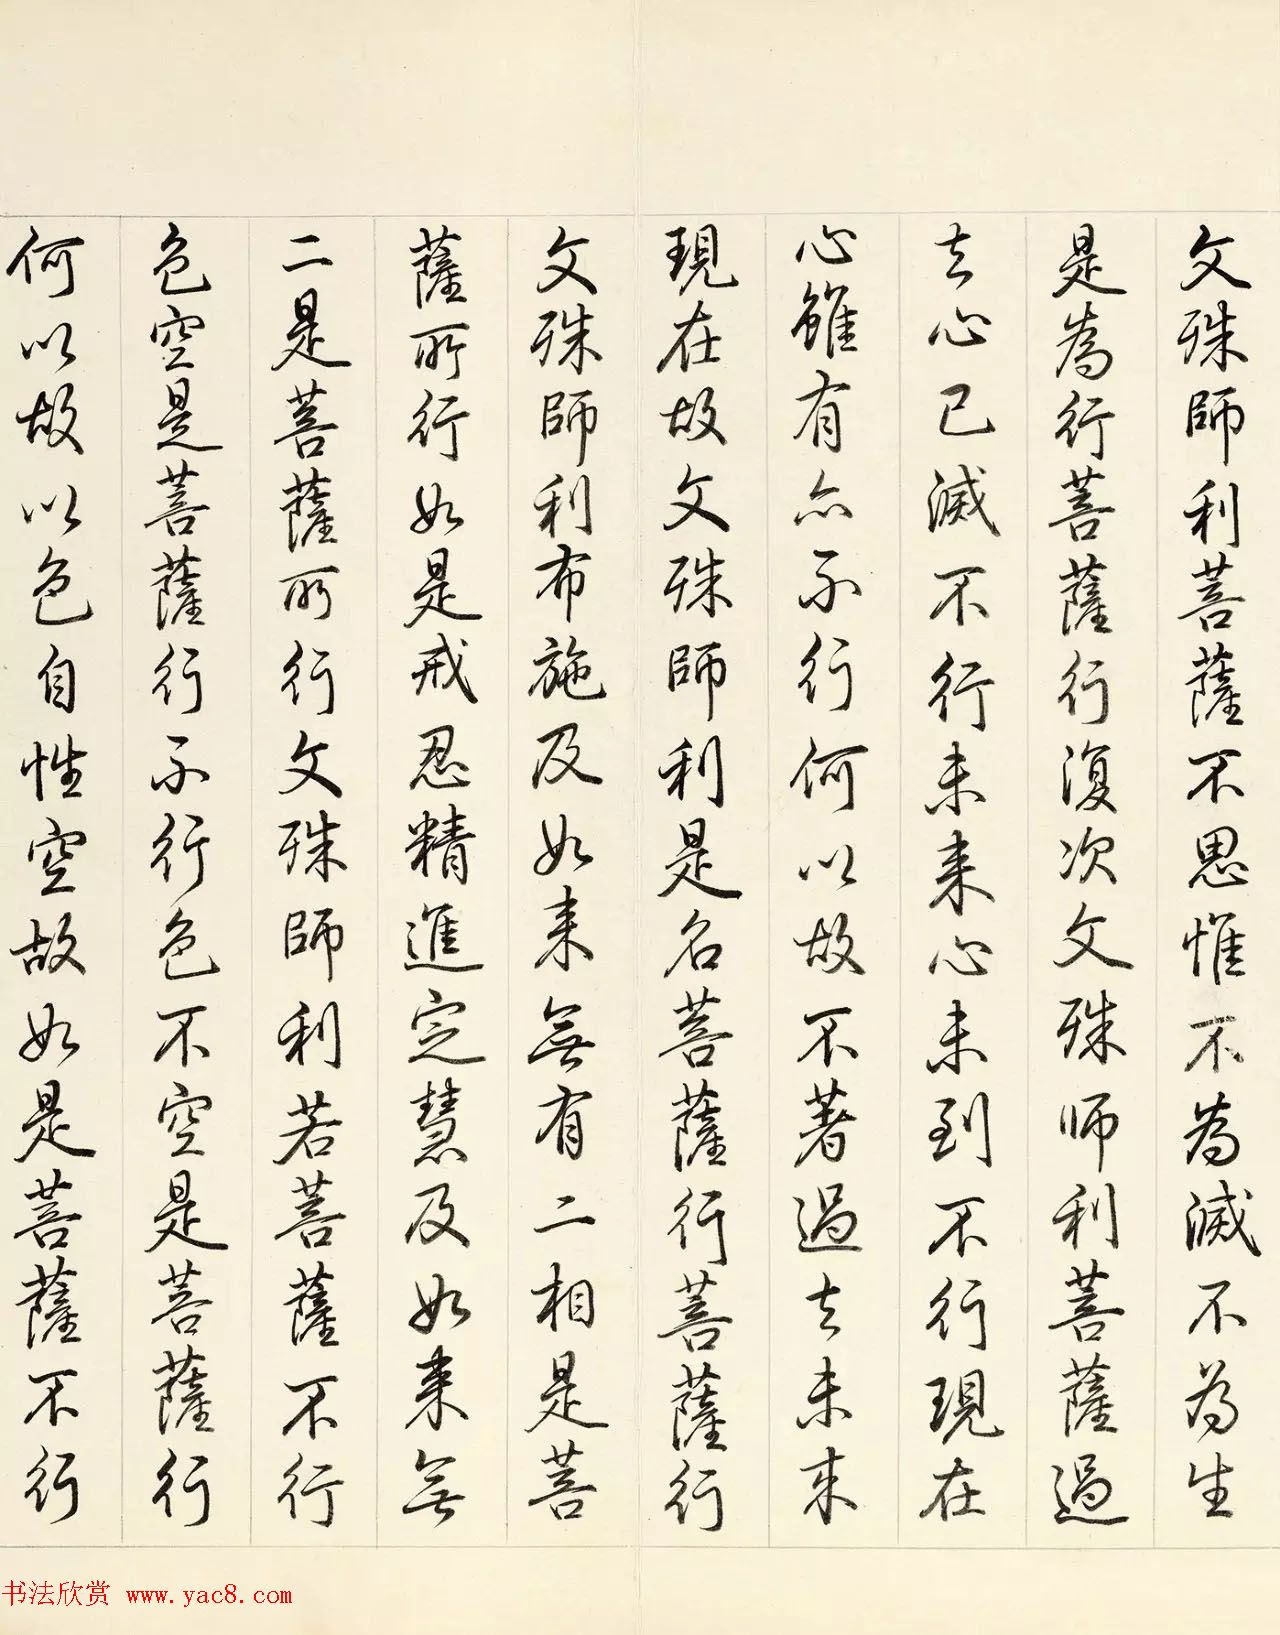 文殊師利菩薩不思惟不為滅不為生
是為行菩薩行復次文殊師利菩薩過
去心已滅不行未来心未到不行現在
心雖有亦不行何以故不著過去未来
現在故文殊師利是名菩薩行菩薩行
文殊師利布施及如来無有二相是菩
薩所行如是戒忍精進定慧及如来無
二是菩薩所行文殊師利若菩薩不行
色空是菩薩行不行色不空是菩薩行
何以故以色自性空故如是菩薩不行
书法欣赏 www.yac8.com